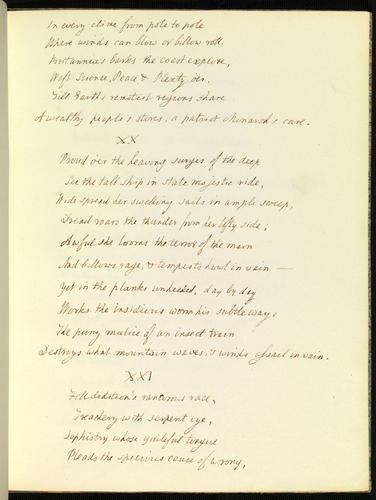 In every clime from pole to pole
Where winds can blow or billow roll.
Britannia's barks the coast explore,
Waft Science, Peace & Plenty o'er.
Till Earth's remotest regions share
A wealthy people's stores, a patriot Monarch's care.
XX
Proud o'er the heaving surges of the deep
See the tall ship in state majestic ride,
Wide spread her swelling sails in ample sweep,
Dread roars the thunder from her lofty side;
Awful she looms the terror of the main
And billows rage, & tempests howl in vain —
Yet in the planks unheeded, day by day
Works the insidious worm his subtle way,
The puny malice of an insect train
Destroys what mountain waves, & winds assail in vain.
XXI
Fell Sedition's rancorous race,
Treachery with serpent eye,
Sophistry whose guileful tongue
Pleads the specious cause of wrong,